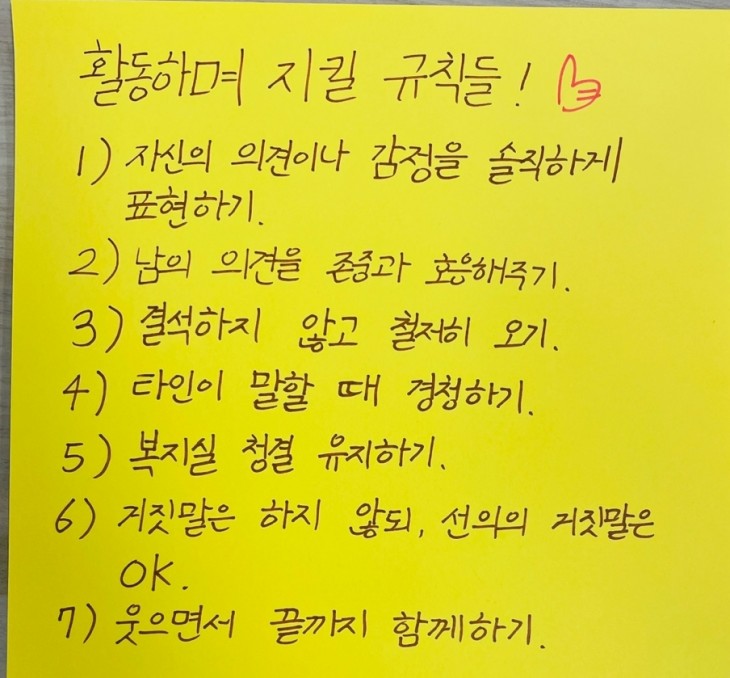 활동하며 지킬 규칙들!
1) 자신의 의견이나 감정을 솔직하게
표현하기.
2) 남의 의견을 존중과 호응해주기.
3) 결석하지 않고 철저히 오기.
4) 타인이 말할 때 경청하기.
5) 복지실 청결 유지하기.
6) 거짓말은 하지 않되, 선의의 거짓말은
OK.
7) 웃으면서 끝까지 함께하기.